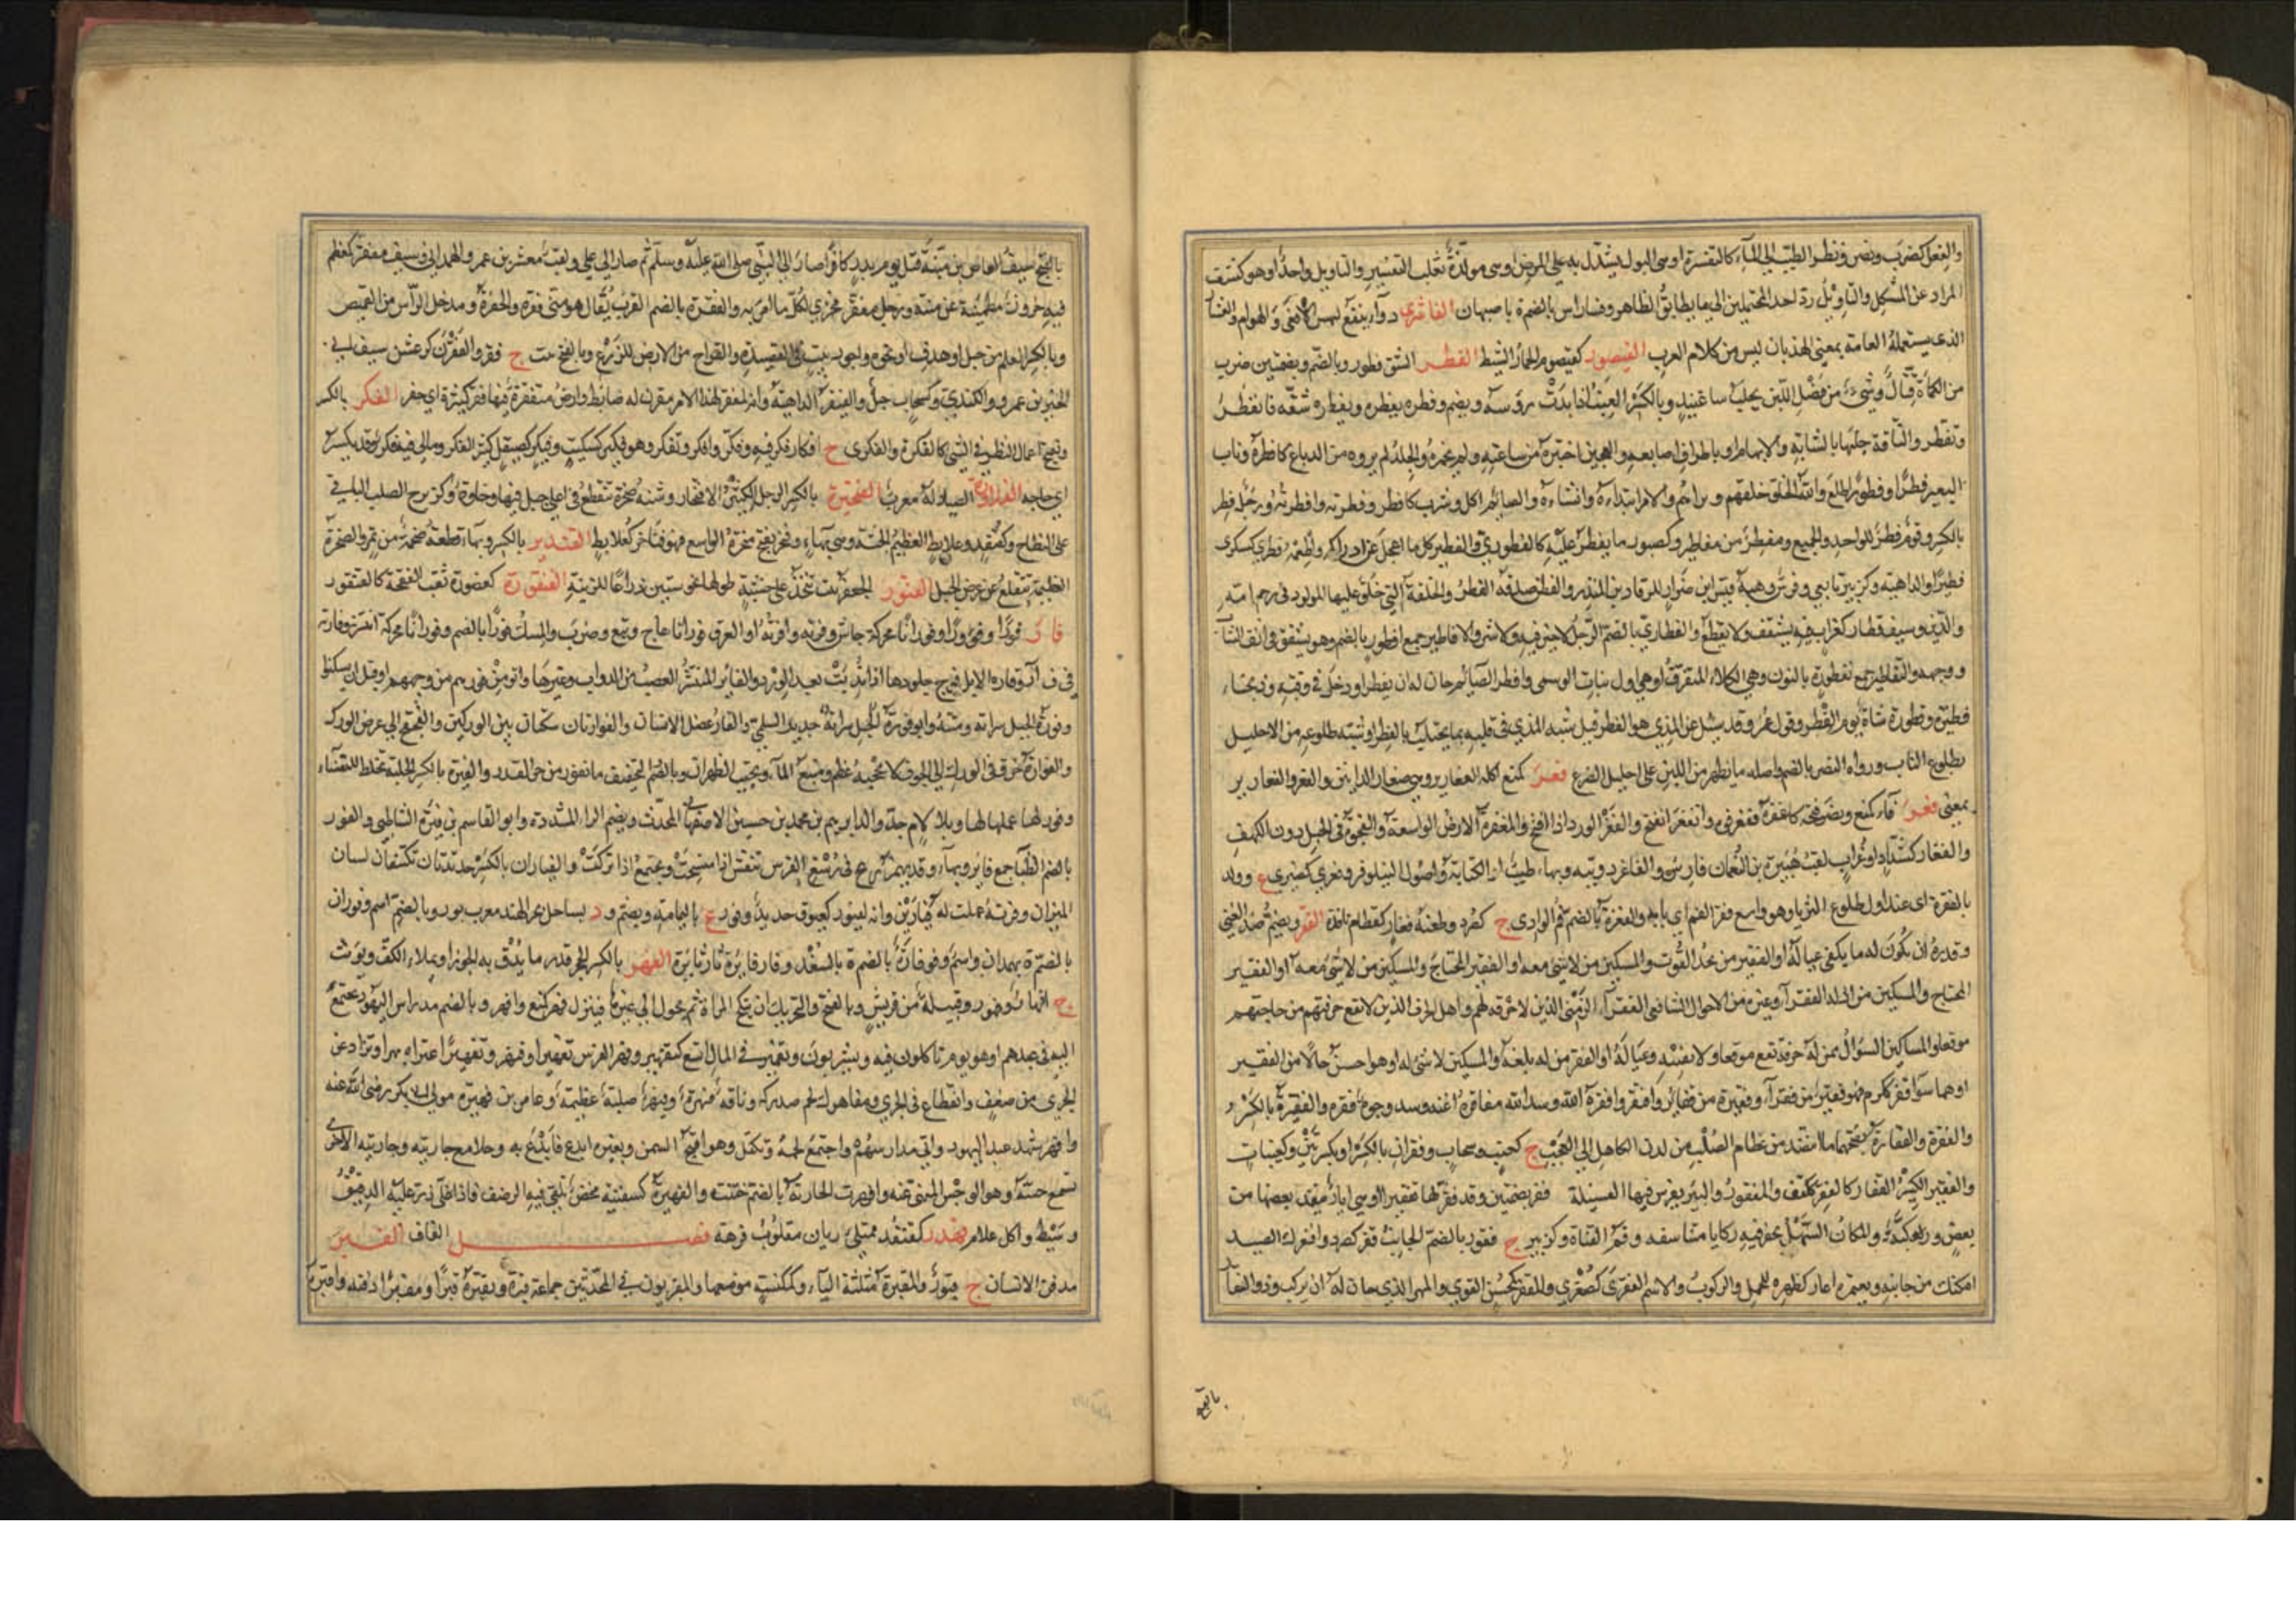 والفعل كضرب ونصر ونظر الطبيب الى الماء كالتفسرة او هى البول يستدل به على المرض او هى مولدة ثعلب التفسير والتاويل واحد او هو كشف
المراد عن المشكل والتاويل رد احد المحتملين الى ما يطابق الظاهر وفساراس بالضم ة باصبهان الفاشرى دواء ينفع لنهس الافعى والهوام والفشار
الذى يستعمله العامة بمعنى الهذيان ليس من كلام العرب الفيصور كقيصوم الحمار النشيط الفطر الشق فطور وبالضم وبضمتين ضرب
من الكماة قتال وشىء من فضل اللبن يحلب ساعتئذ وبالكسر العنب اذا بدت رؤسه ويضم وفطره يفطره ويفطره شقه فانفطر
وتفطر والناقة حلبها بالسبابة والابهام او باطراف اصابعه والعجين اختبزه من ساعته ولم يخمره والجلد لم يروه من الدباغ كافطره وناب
البعير فطرا وفطورا طلع والله الخلق خلقهم وبراهم والامر ابتداه وانشاه والصائم اكل وشرب كافطر وفطرته وافطرته ورجل فطر
بالكسر وقوم فطر للواحد والجميع ومفطر من مفاطير وكصبور ما يفطر عليه كالفطورى والفطير كل ما اعجل عن ادراكه واطعمه فطرى كسكرى
فطيرا والداهية وكزبير تابعى وفرس وهبه قيس بن ضرار للرقاد بن المنذر والفطرة صدقة الفطر والخلقة التى خلق عليها المولود فى رحم امه
والدين وسيف فطار كغراب فيه تشقق ولا يقطع والفطارى بالضم الرجل لا خير فيه ولا شر والافاطير جمع افطور بالضم وهو تشقق فى انف الشاب
ووجهه والتفاطير جمع تفطورة بالنون وهى الكلاء المتفرق او هى اول نبات الوسمى وافطر الصائم حان له ان يفطر او دخل فى وقته وذبحنا
فطيرة وفطورة شاة يوم الفطر وقول عمر وقد سئل عن المذى هو الفطر قيل شبه المذى فى قلته بما يحتلب بالفطر او شبه طلوعه من الاحليل
بطلوع الناب ورواه النضر بالضم واصله ما يظهر من اللبن على احليل الضرع فعر كمنع اكل الفعارير وهى صغار الذآنين والفعر والفعارير
بمعنى فغر فاه كمنع ونصر فتحه كافغره ففغر فوه وانفغر انفتح والفغر الورد اذا فتح والمفغرة الارض الواسعة والفجوة فى الجبل دون الكهف
والفغار كشداد او غراب لقب هبيرة بن النعمان فارس والفاغر دويبة وبهاء طيب او الكبابة واصول النيلوفر وفغرى كضيزى ع وولد
بالفغرة اى عند اول طلوع الثريا وهو واسع فغر الفم اى بابه والفغرة بالضم فم الوادى ج كصرد وطعنة فغار كقطام نافذة الفقر ويضم ضد الغنى
وقدره ان يكون له ما يكفى عياله او الفقير من يجد القوت والمسكين من لا شىء معه او الفقير المحتاج والمسكين من لا شىء معه او الفقير
المحتاج والمسكين من اذله الفقر او غيره من الاحوال الشافعى الفقراء الزمنى الذين لا حرفة لهم واهل الحرف الذين لا تقع حرفتهم من حاجتهم
موقعا والمساكين السؤال ممن له حرفة تقع موقعا ولا تغنيه وعياله او الفقير من له بلغة والمسكين لا شىء له او هو احسن حالا من الفقير
او هما سواء فقر ككرم فهو فقير من فقراء وفقيرة من فقائر وافتقر وافقره الله وسد الله مفاقره اغناه وسد وجوه فقره والفقرة بالكسر
والفقرة والفقارة بفتحهما ما انتضد من عظام الصلب من لدن الكاهل الى العجب ج كعنب وسحاب وفقرات بالكسر او بكسرتين وكعنبات
والفقير الكسير الفقار كالفقر ككتف والمفقور والبئر يغرس فيها الفسيلة فقر بضمتين وقد فقر لها تفقيرا او هى آبار ينفذ بعضها من
بعض وركية والمكان السهل يحفر فيه ركايا متناسقة وفم القناة وكزبير ج ففقور بالضم الجانب فقر كصرد وافقرك الصيد
امكنك من جانبه وبعيره اعارك ظهره للحمل والركوب والاسم الفقرى كصغرى والمفقر كمحسن القوى والمهر الذى حان له ان يركب وذو الفقار
بالفتح
بالفتح سيف العاص بن منبه قتل يوم بدر كافرا صار الى النبى صلى الله عليه وسلم ثم صار الى على ولقب معشر بن عمرو الهمدانى وسيف مفقر كمعظم
فيه حزوز مطمئنة عن متنه ورجل مفقر مجزئ لكل ما امر به والفقرة بالضم القرب يقال هو منى فقرة والحفرة ومدخل الراس من القميص
وبالكسر العلم من جبل او هدف او نحوه واجود بيت فى القصيدة والقراح من الارض للزرع وبالفتح نبت ج فقر والفقرن كرعشن سيف ابى
الخير بن عمرو الكندى وكسحاب جبل والفيقر الداهية وانه لمفقر لهذا الامر مقرن له ضابط وارض متفقرة فيها فقر كثيرة اى حفر الفكر بالكسر
ويفتح اعمال النظر فى الشىء كالفكرة والفكرى ج افكار فكر فيه وافكر وفكر وتفكر وهو فكير كسكيت وفيكر كصيقل كثير الفكر ومالى فيه فكر وقد يكسر
اى حاجة الفلاورة الصيادلة معرب الفنخيرة بالكسر الرجل الكثير الافتخار وشبه صخرة تنقطع فى اعلى جبل فيها رخاوة وكزبرج الصلب الباقى
على النطاح وكقنفذ وعلابط العظيم الجثة وهى بهاء وفنخر نفخ منخره الواسع فهو فناخر كعلابط الفنديرة بالكسر وبهاء قطعة ضخمة من تمر والصخرة
العظيمة تنقلع عن عرض الجبل الفنزر كجعفر بيت يتخذ على خشبة طولها نحو ستين ذراعا للربيئة الفنقورة كعصفورة ثقب الفقحة كالفنقور
فار فورا وفؤورا وفورانا محركة جاش وفرته وافرته والعرق فورانا هاج ونبع وضرب والمسك فوارا بالضم وفورانا محركة انتشر وفارته
فى ف ا ر وفارة الابل فوح جلودها اذا نديت بعد الورد والفائر المنتشر العصب من الدواب وغيرها واتوا من فورهم من وجههم او قبل ان يسكنوا
وفورة الجبل سراته ومتنه وابو فورة حدير السلمى والفار عضل الانسان والفوارتان سكتان بين الوركين والقحقح الى عرض الورك
والفوارة خرق فى الورك الى الجوف لا يحجبه عظم ومنبع الماء وتجيب الظهران وبالضم والتخفيف ما يفور من حر القدر والفيرة بالكسر الحلبة تخلط للنفساء
وفور لها عملها لها وبلا لام جد والد ابراهيم بن محمد بن حسين الاصفهانى المحدث وبضم الراء المشددة وابو القاسم بن فيره الشاطبى والفور
بالضم الظباء جمع فائر وبهاء وقد يهمز ريح فى رسغ الفرس تنفش اذا مسحت وتجتمع اذا تركت والفياران بالكسر حديدتان تكتنفان لسان
الميزان وفرته عملت له فيارين وانه لفيور كعيوق حديد وفور ع باليمامة ويضم ود بساحل بحر الهند معرب بور وبالضم اسم وفوران
بالضم ة بهمدان واسم وفوفارة بالضم ة بالسغد وفار فائره ثار ثائره الفهر بالكسر الحجر قدر ما يدق به الجوز او يملاء الكف ويؤنث
ج افهار وفهور وقبيلة من قريش وبالفتح والتحريك ان ينكح المراة ثم يتحول الى غيرها فينزل فهر كمنع وافهر وبالضم مدراس اليهود يجتمع
اليه فى عيدهم او هو يوم ياكلون فيه ويشربون وتفهر فى المال اتسع كتفيهر وفهر الفرس تفهيرا وفيهر وتفيهر اعتراه بهر او تراد عن
الجرى من ضعف وانقطاع فى الجرى ومفاهرك لحم صدرك وناقة فيهرة وفيهر صلبة عظيمة وعامر بن فهيرة مولى ابى بكر رضى الله عنه
وافهر شهد عيد اليهود واتى مدراسهم واجتمع لحمه وتكتل وهو اقبح السمن وبعيره ابدع فابدع به وخلا مع جاريته وجاريته الاخرى
تسمع حسه وهو الوجس المنهى عنه وافهرت الجارية بالضم ختنت والفهيرة كسفينة محض يلقى فيه الرضف فاذا غلى ذر عليه الدقيق
وسيط واكل غلام فهدر كقنفذ ممتلئ ريان مقلوب فرهد فصـــل القاف القبر
مدفن الانسان ج قبور والمقبرة مثلثة الباء وكمكنسة موضعها والمقبريون فى المحدثين جماعة قبره يقبره قبرا ومقبرا دفنه واقبره